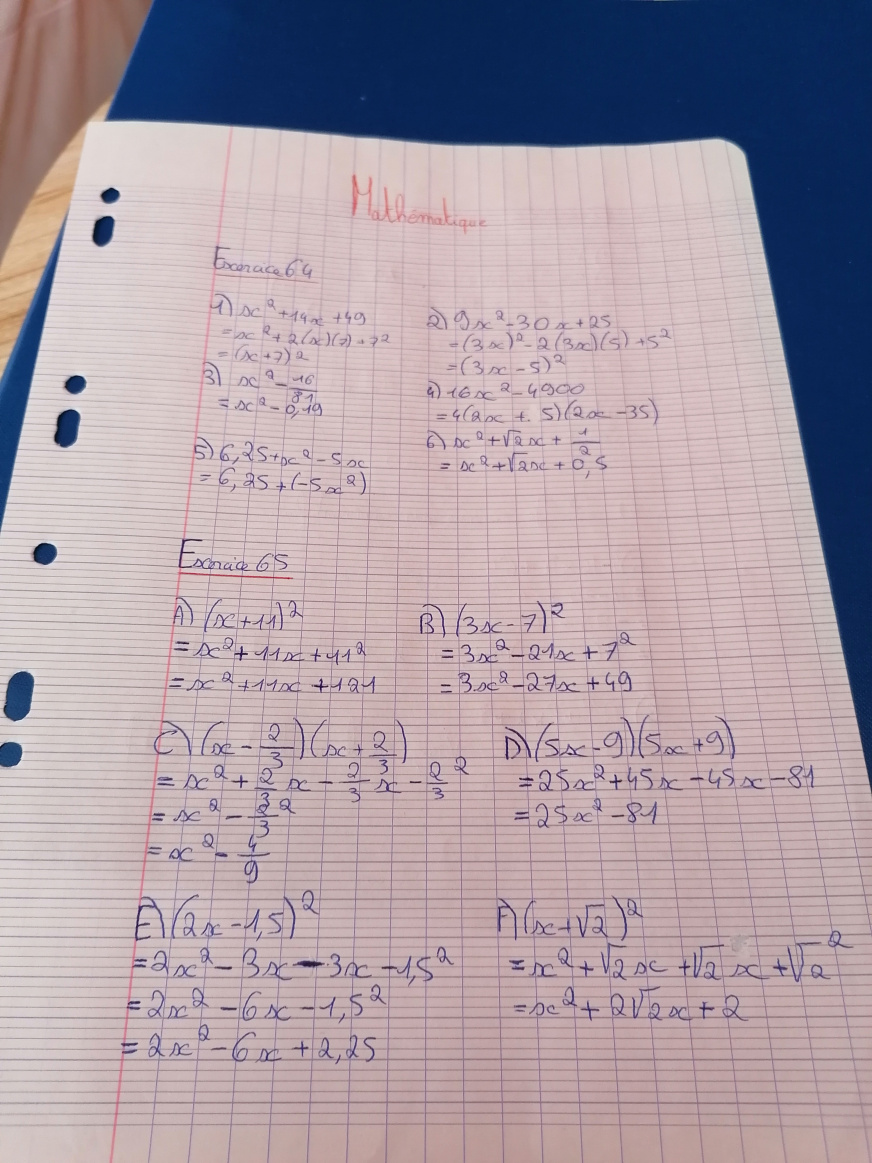 Mathématique
Exercice 64
1) x² + 14x + 49
= x² + 2(x)(7) + 7²
= (x+7)²
2) 9x² - 30x + 25
= (3x)² - 2(3x)(5) + 5²
= (3x - 5)²
3) x² - 16/81
= x² - 0,19
4) 16x² - 4900
= 4(2x + . 5)(2x - 35)
5) 6,25 + x² - 5x
= 6,25 + (-5x²)
6) x² + √2x + 1/2
= x² + √2x + 0,5
Exercice 65
A) (x + 11)²
= x² + 11x + 11²
= x² + 11x + 121
B) (3x - 7)²
= 3x² - 21x + 7²
= 3x² - 27x + 49
C) (x - 2/3)(x + 2/3)
= x² + 2/3 x - 2/3 x - 2/3²
= x² - 2/3²
= x² - 4/9
D) (5x - 9)(5x + 9)
= 25x² + 45x - 45x - 81
= 25x² - 81
E) (2x - 1,5)²
= 2x² - 3x - 3x - 1,5²
= 2x² - 6x - 1,5²
= 2x² - 6x + 2,25
F) (x + √2)²
= x² + √2x + √2x + √2²
= x² + 2√2x + 2